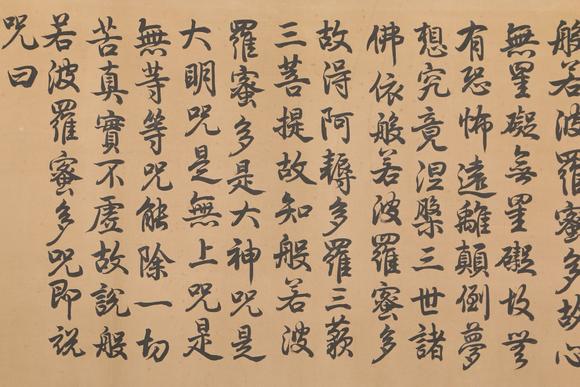 般若波羅蜜多故心
無罣礙無罣礙故無
有恐怖遠離顛倒夢
想究竟涅槃三世諸
佛依般若波羅蜜多
故得阿耨多羅三藐
三菩提故知般若波
羅蜜多是大神咒是
大明咒是無上咒是
無等等咒能除一切
苦真實不虛故說般
若波羅蜜多咒即說
咒曰